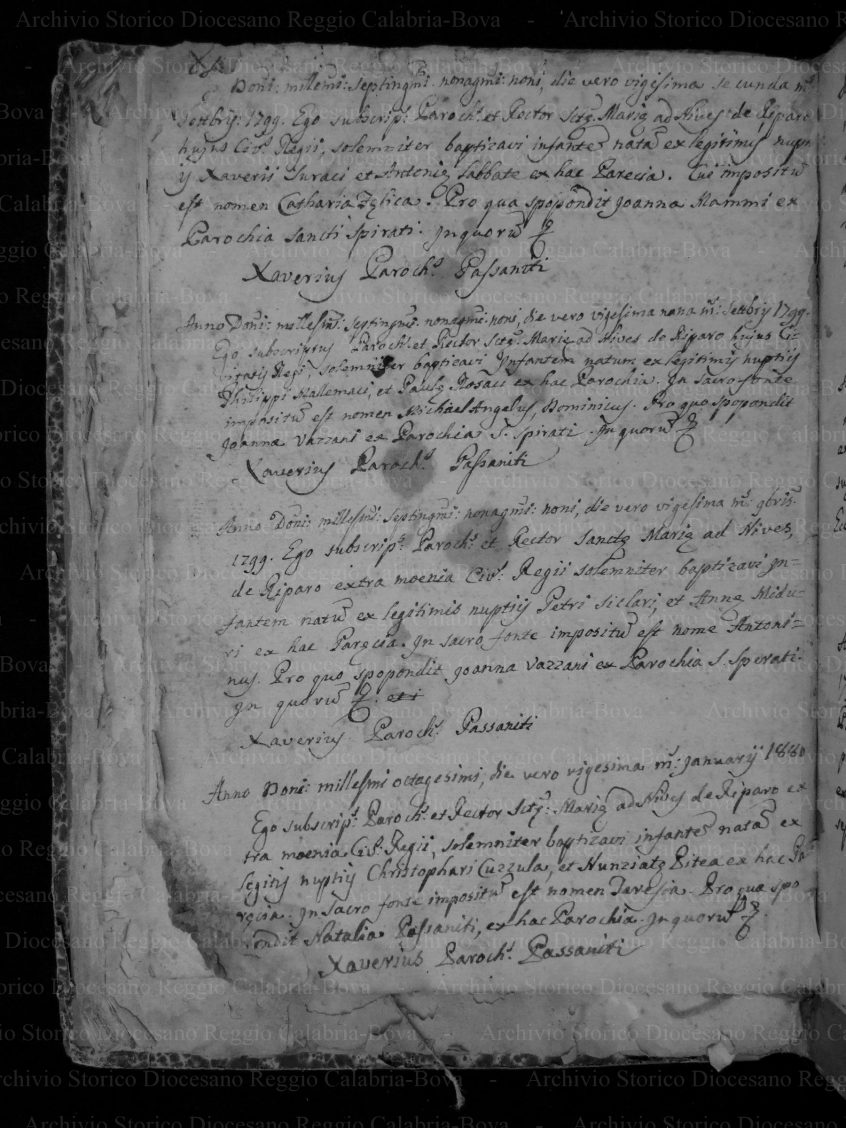 Doni: millesmi: septingmi: nonagmi: noni, die vero vigesima secunda m:
Settbrys: 1799. Ego subscrip: Paroch: et Rector Sctę Marię ad Nives de Riparo
hujus Civ: Regii, solemniter baptizavi infantē natā ex legitimis nupti
ij Xaverii Suraci et Antonię Sabbate ex hac Parecia. Cui impositū
est nomen Catharina Pro qua spopondit Joanna Mammi ex
Parochia Sancti Spirati. In quorū
Xaverius Paroch: Passaniti
Anno Doni: millesmi: septingmi: nonagmi: noni, die vero vigesima nona m: Settbrij 1799.
Ego subscriptus Paroch: et Rector Sctę: Marię ad Nives de Riparo hujus Ci-
vitatis Regii solemniter baptizavi Infantem natum ex legitimis nuptijs
Philippi Mallemaci, et Paulę Rosaci ex hac Parochia. In sacro fonte
impositū est nomen Michael Angelus, Dominicus. Pro quo spopondit
Joanna Vazzani ex Parochia S. Spirati. In quorū
Xaverius Paroch: Passaniti
Anno Doni: millesmi: septingmi: nonagmi: noni, die vero vigesima m: 9bris
1799. Ego subscrip: Paroch: et Rector Sanctę Marię ad Nives,
de Riparo extra moenia Civ: Regii solemniter baptizavi In=
fantem natū ex legitimis nuptijs Petri Siclari, et Annę Midu=
ri ex hac Parecia. In sacro fonte impositū est nome Antoni=
nus. Pro quo spopondit Joanna Vazzani ex Parochia S. Spirati.
In quorū
Xaverius Paroch: Passaniti
Anno Doni: millesmi octagesimi, die vero vigesima m: Januarij 1880
Ego subscrip: Paroch: et Rector Sctę: Marię ad Nives de Riparo ex
tra moenia Civ: Regii, solemniter baptizavi infantē natā ex
legitis nuptijs Christophari Cuzzula, et Nunziatę Pitea ex hac Pa
ręcia. In Sacro fonte impositū est nomen Taresia. Pro qua spo
ondit Natalia Passaniti, ex hac Parochia. In quorū
Xaverius Paroch: Passaniti
Archivio Storico Diocesano Reggio Calabria-Bova